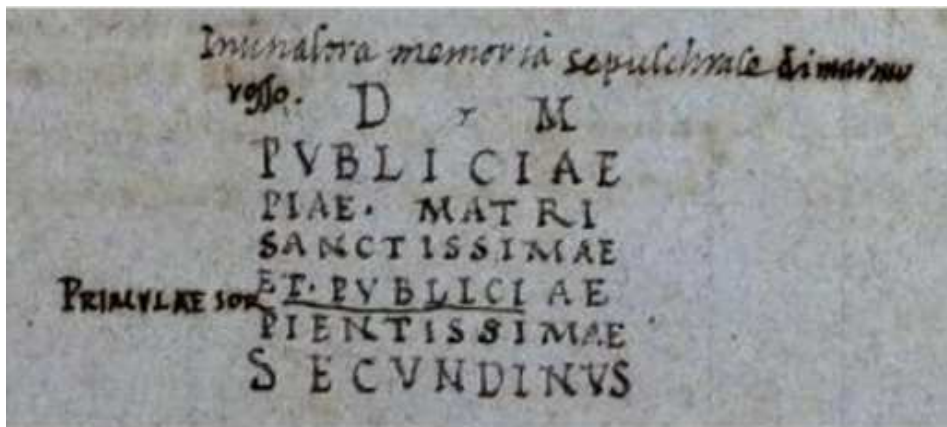 memoria sepulchrale di marmo
rosso.
D M
PVBLICIAE
PIAE. MATRI
SANCTISSIMAE
PRIMVLAE SOR ET. PVBLICIAE
PIENTISSIMAE
SECVNDINVS